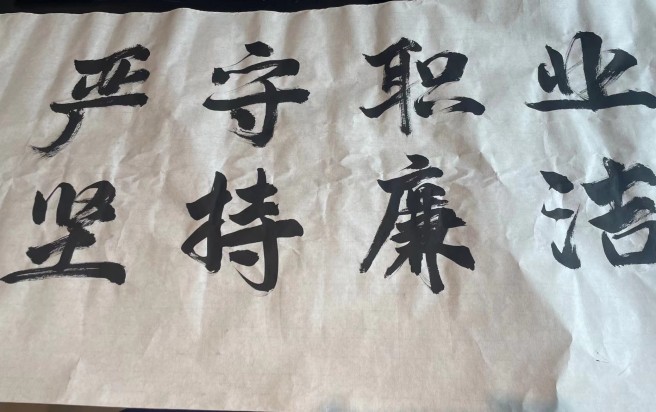 严守职业
坚持廉洁